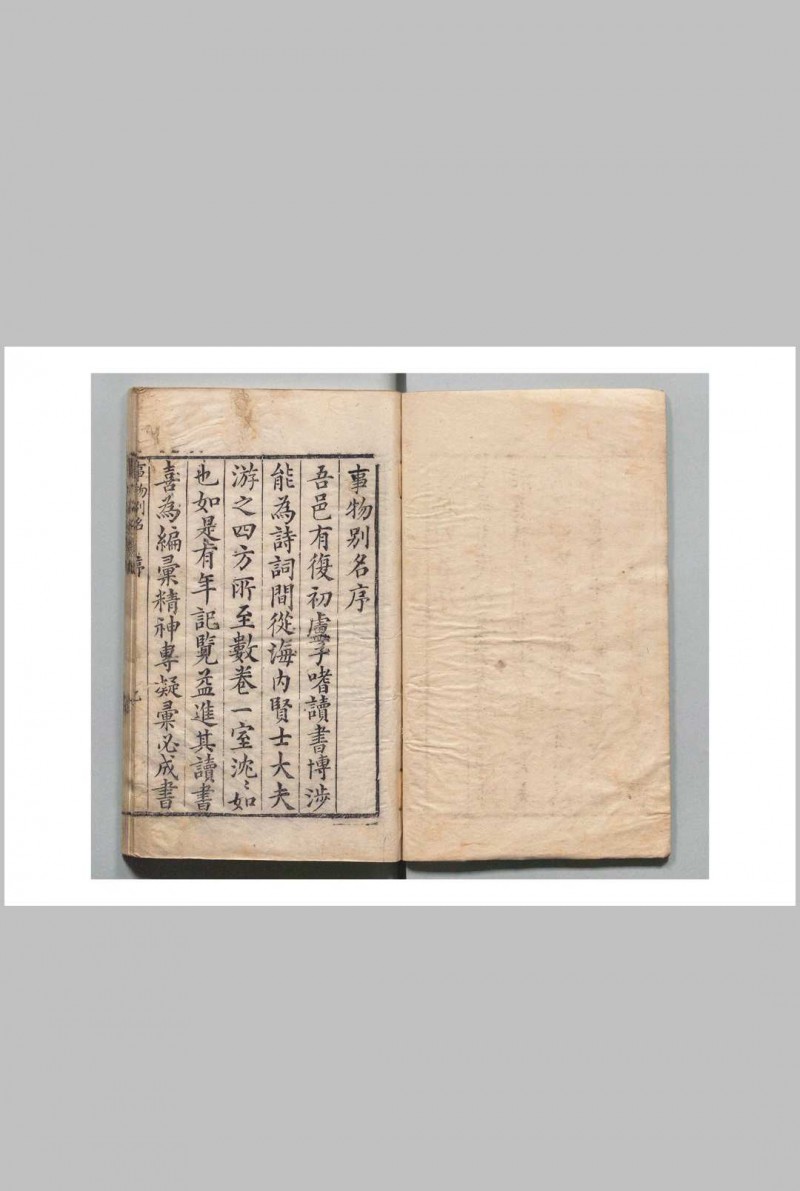 事物别名序
吾邑有復初盧子嗜讀書博涉
能為詩詞間從海内賢士大夫
游之四方所至數卷一室沈〻如
也如是有年記覽益進其讀書
喜為編彙精神專凝彙必成書
事物别名 序